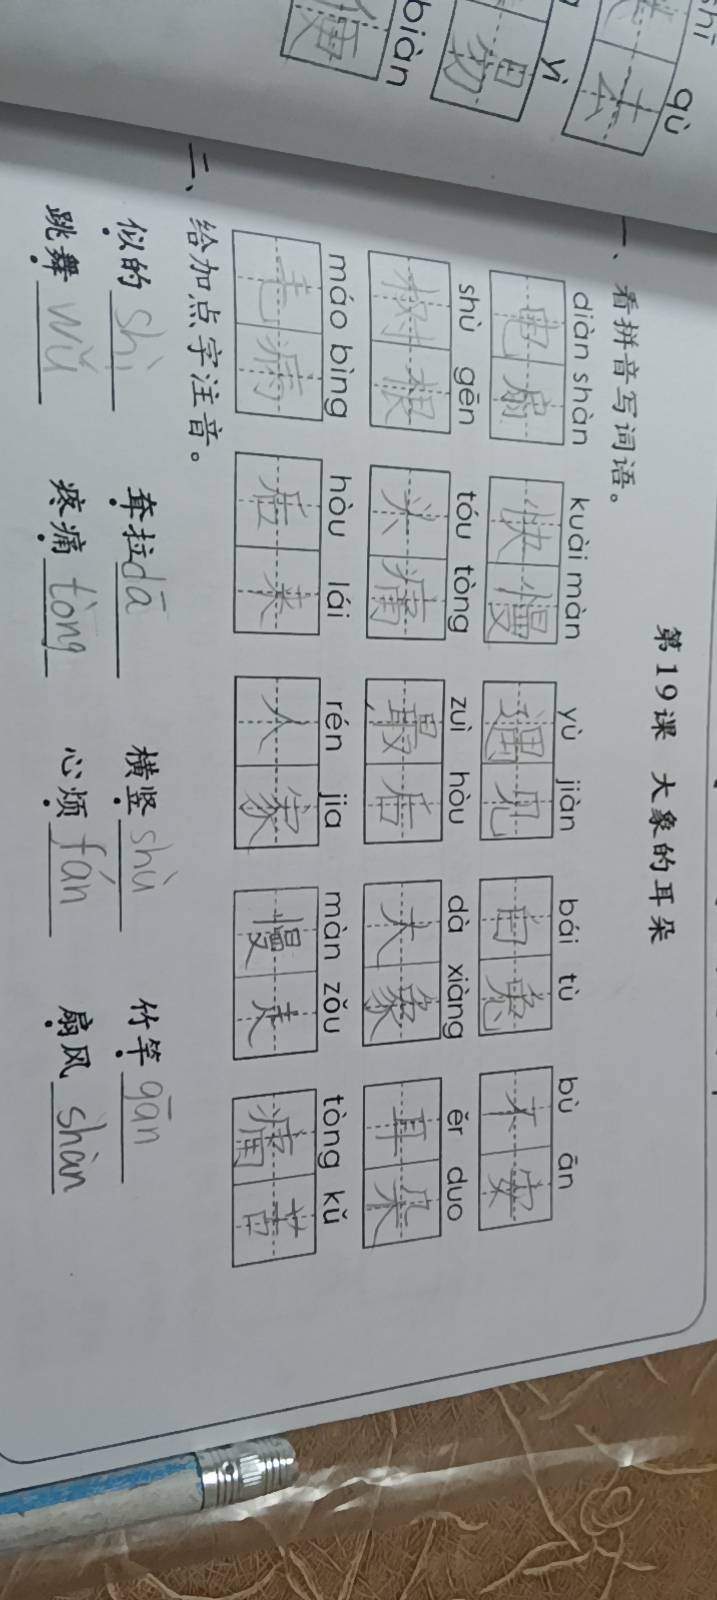 shī qù
去
yì
易
biàn
便
第19课 大象的耳朵
一、看拼音写词语。
diàn shàn kuài màn yù jiàn bái tù bù ān
电扇 快慢 遇见 白兔 不安
shù gēn tóu tòng zuì hòu dà xiàng ěr duo
树根 头痛 最后 大象 耳朵
máo bìng hòu lái rén jia màn zǒu tòng kǔ
毛病 后来 人家 慢走 痛苦
二、给加点字注音。
似的 shì 耷拉 dā 横竖 shù 竹竿 gān
跳舞 wǔ 疼痛 tòng 心烦 fán 扇风 shàn